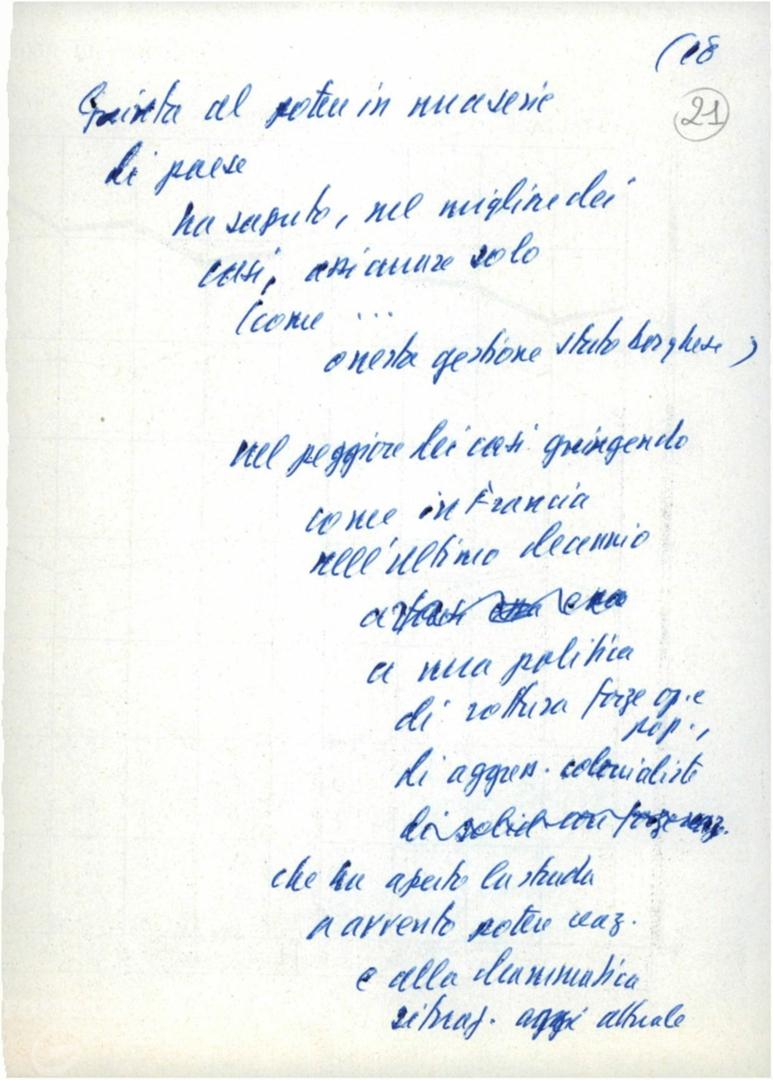 (18
21
Giunta al potere in una serie
di paese
ha saputo, nel migliore dei
casi, assicurare solo
(come ...
onesta gestione stato borghese)
nel peggiore dei casi giungendo
come in Francia
nell'ultimo decennio
a una politica
di rottura forze op. e
pop.,
di aggress. colonialiste
di solid. con forze reaz.
che ha aperto la strada
a avvento potere reaz.
e alla drammatica
situaz. oggi attuale